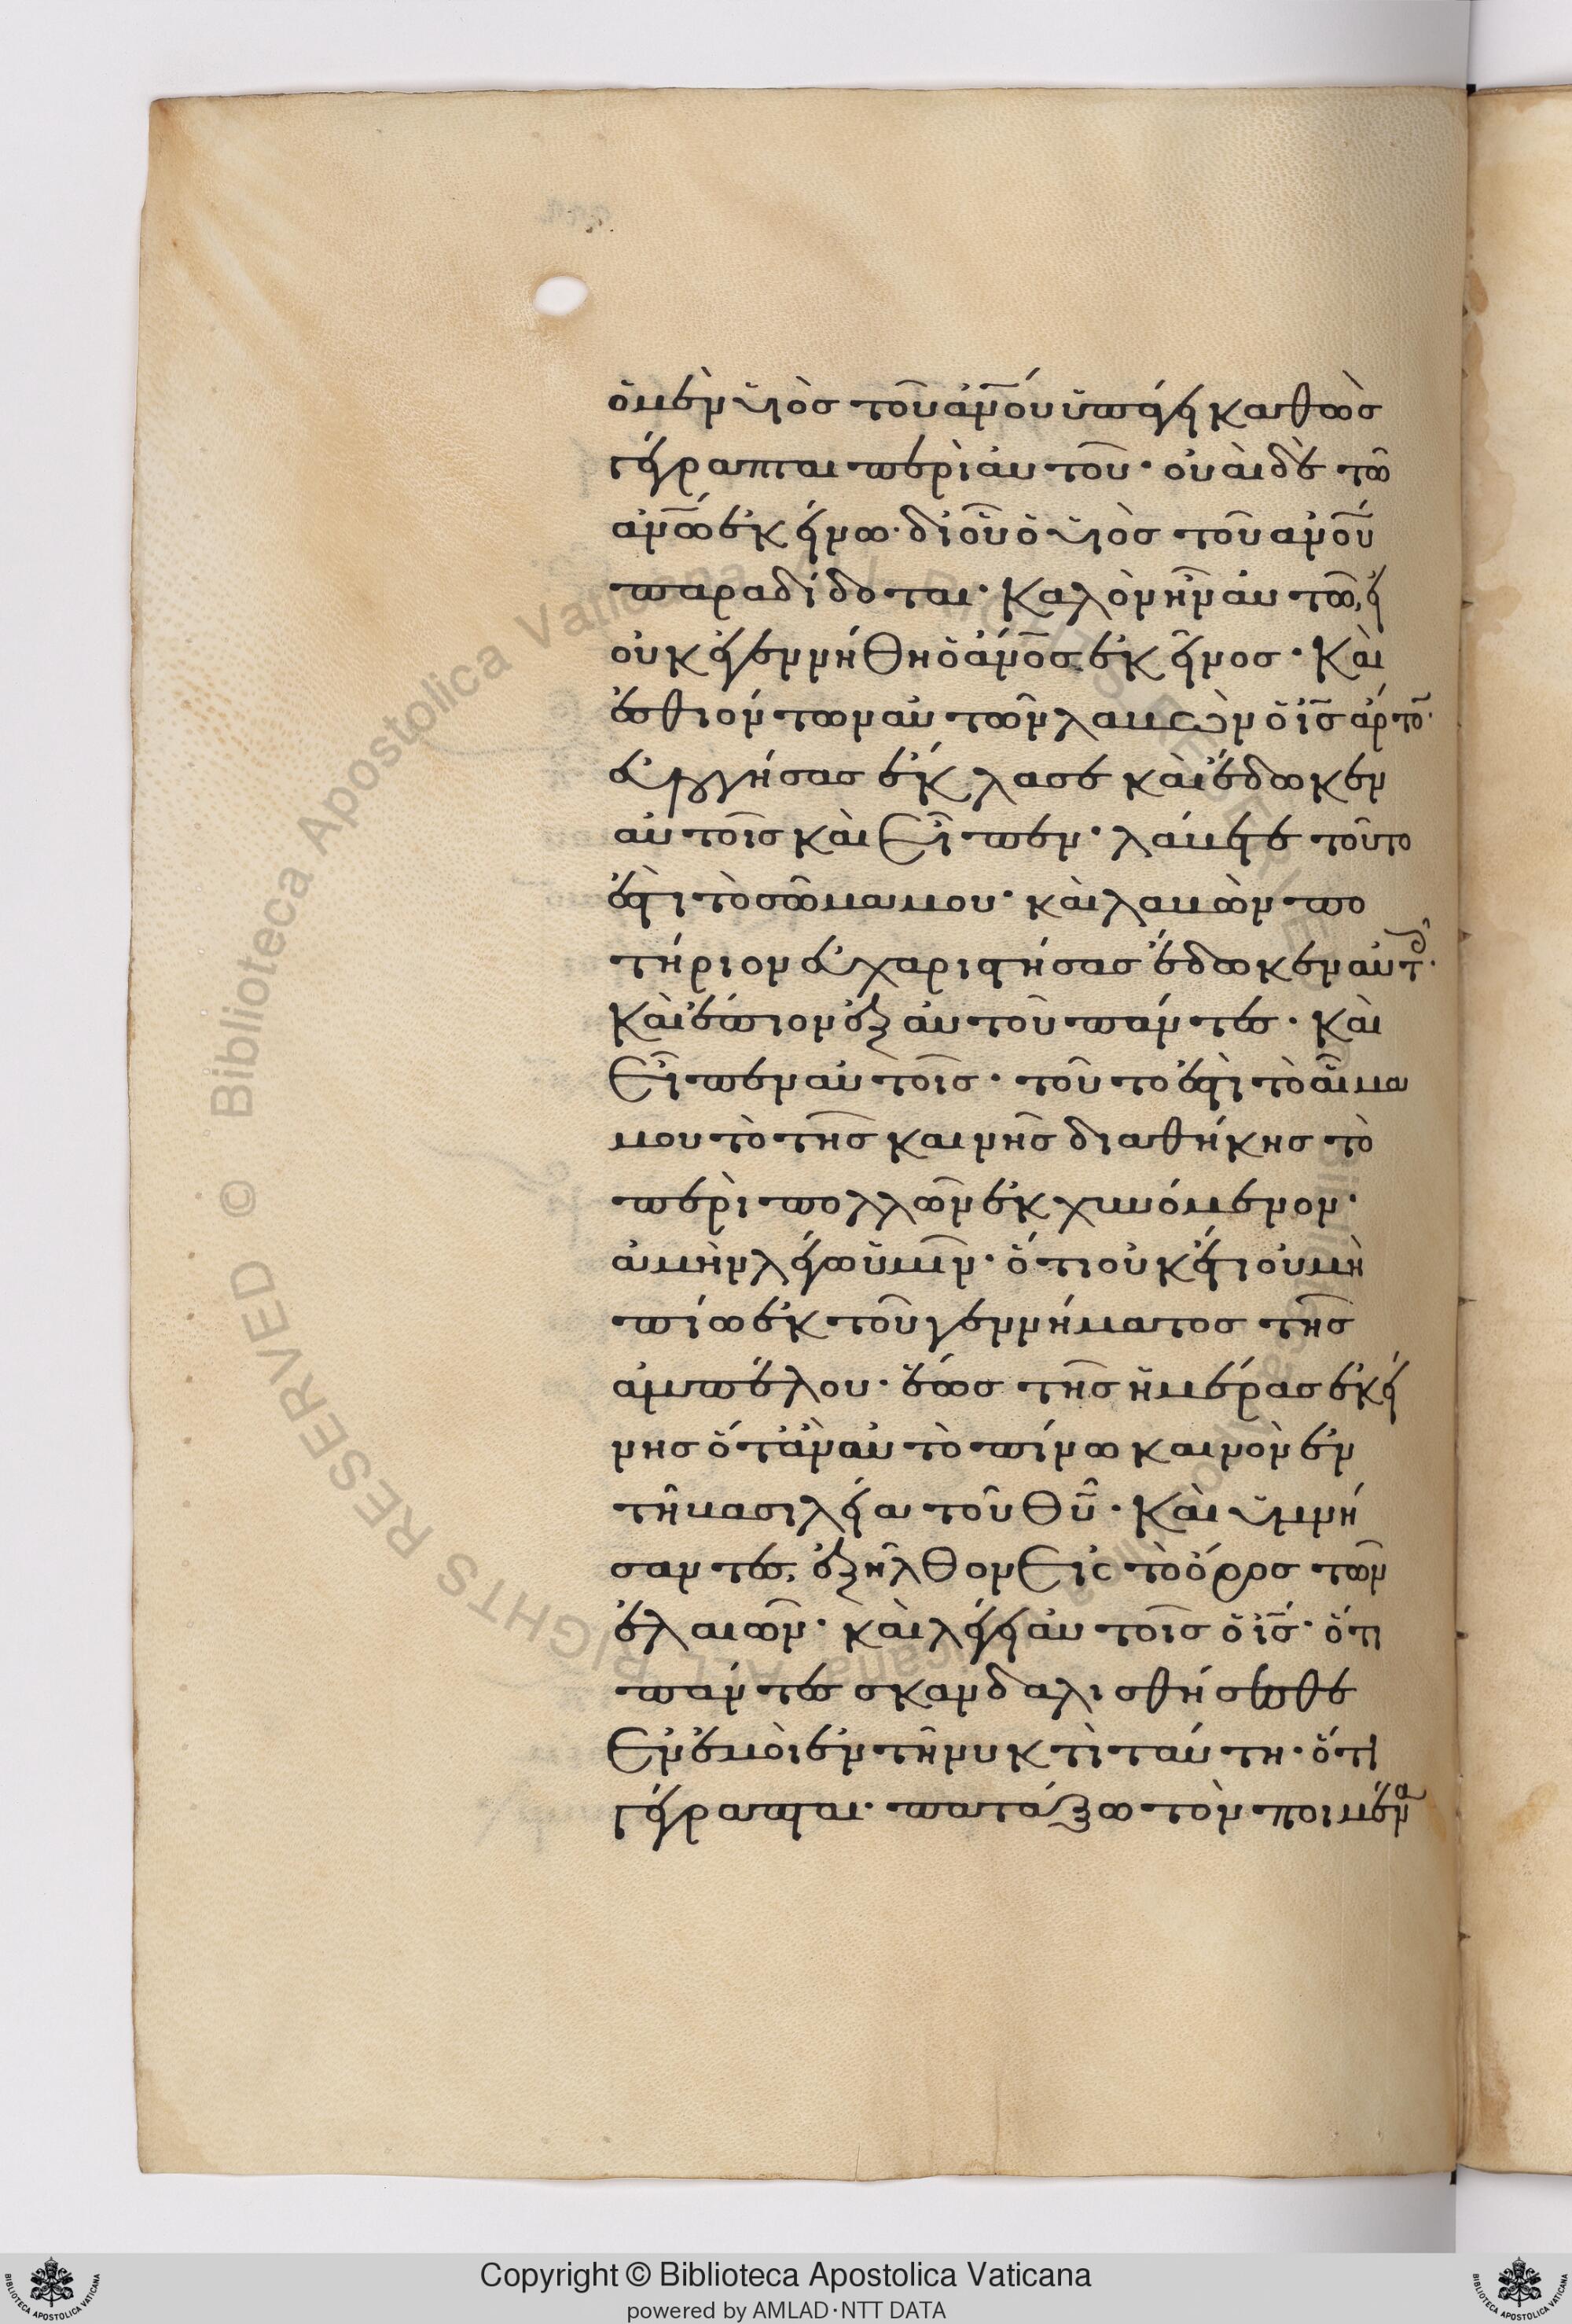 ὁ μὲν υἱὸς τοῦ ἀν̅ο̅υ̅ ὑπάγει καθὼς
γέγραπται περὶ αὐτοῦ· οὐαὶ δὲ τῶ
ἀν̅ω̅ ἐκείνω· δι' οὗ ὁ υἱὸς τοῦ ἀν̅ο̅υ̅
παραδίδοται· Καλὸν ἦν αὐτῶ, εἰ
οὐκ ἐγεννήθη ὁ ἄν̅ο̅ς̅ ἐκεῖνος· Καὶ
ἐσθιόντων αὐτῶν λαβὼν ὁ ι̅ς̅ ἄρτο̅·
εὐλογήσας ἔκλασε καὶ ἔδωκεν
αὐτοῖς καὶ εἶπεν· λάβετε τοῦτο
ἐστὶ τὸ σῶμα μου· καὶ λαβὼν πο
τήριον εὐχαριστήσας ἔδωκεν αὐτ·
Καὶ ἔπιον ἐξ αὐτοῦ πάντες· καὶ
εἶπεν αὐτοῖς· τοῦτο ἐστὶ τὸ αἷμα
μου τὸ τῆς καινῆς διαθήκης τὸ
περὶ πολλῶν ἐκχυνόμενον·
ἀμὴν λέγω ὑμῖν· ὅτι οὐκέτι οὐ μὴ
πίω ἐκ τοῦ γεννήματος τῆς
ἀμπέλου· ἕως τῆς ἡμέρας ἐκεί
νης ὅταν αὐτὸ πίνω καινὸν ἐν
τῆ βασιλεία τοῦ θ̅υ̅· Καὶ ὑμνή
σαντες, ἐξῆλθον εἰς τὸ ὄρος τῶν
ἐλαιῶν· καὶ λέγει αὐτοῖς ὁ ι̅ς̅· ὅτι
πάντες σκανδαλισθήσεσθε
ἐν ἐμοὶ ἐν τῆ νυκτὶ ταύτη· ὅτι
γέγραπται· πατάξω τὸν ποιμένα
Copyright © Biblioteca Apostolica Vaticana
powered by AMLAD·NTT DATA
Biblioteca Apostolica Vaticana ALL RIGHTS RESERVED ©
BIBLIOTECA APOSTOLICA VATICANA
BIBLIOTECA APOSTOLICA VATICANA